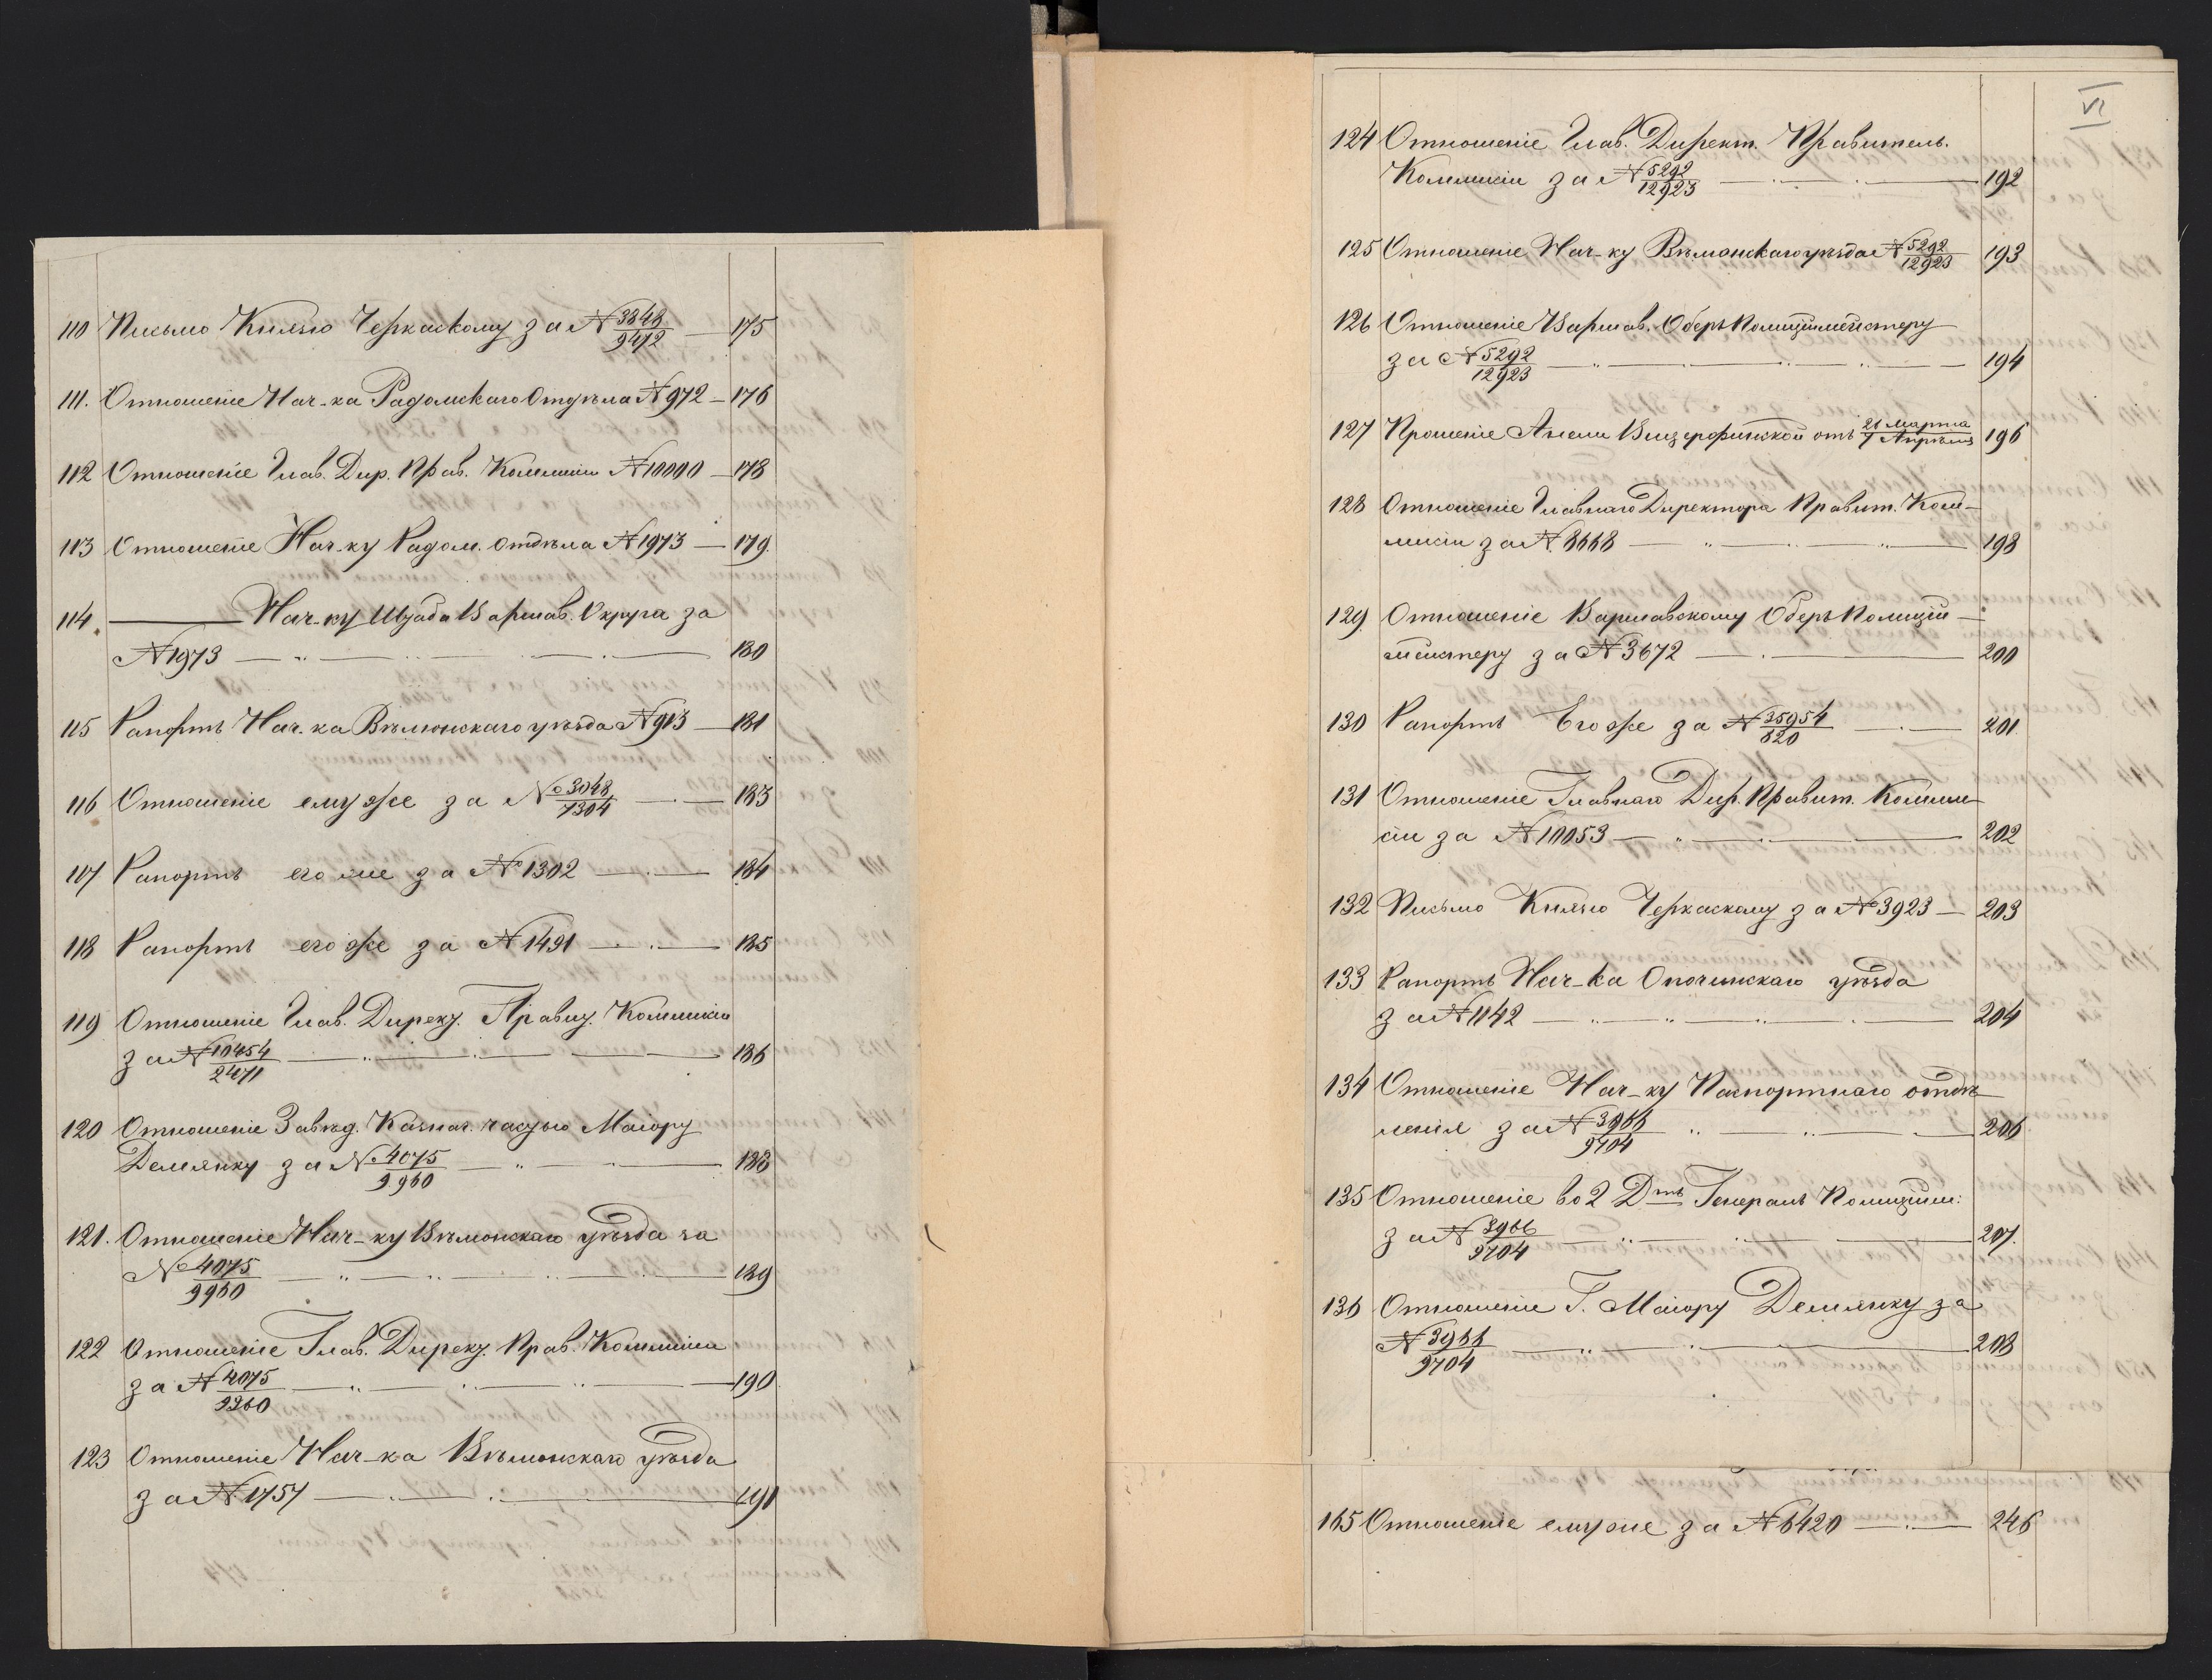 110 Письмо Князю Черкаскому за № 3848/9472 — 175
111. Отношеніе Нач-ка Радомскаго Отдѣла № 972 — 176
112 Отношеніе Глав. Дир. Прав. Коммисіи № 10000 — 178
113 Отношеніе Нач-ку Радом. отдѣла № 1973 — 179.
114. ——— Нач-ку Штаба Варшав. Округа за
№ 1973 — 180
115 Рапортъ Нач-ка Вѣлюнскаго уѣзда № 913 — 181
116 Отношеніе емуже за № 3048/7304 — 183
117 Рапортъ егоже за № 1302 — 184
118 Рапортъ егоже за № 1491 — 185
119 Отношеніе Глав. Дирек. Прави. Коммисіи
за № 10454/2471 — 186
120 Отношеніе Завѣд. Казнач. частью Маіору
Демянку за № 4075/9960 — 188
121. Отношеніе Нач-ку Вѣлюнскаго уѣзда за
№ 4075/9960 — 189
122 Отношеніе Глав. Дирек. Прав. Коммисіи
за № 4075/9960 — 190
123 Отношеніе Нач-ка Вѣлюнскаго уѣзда
за № 1757 — 191
VI
124 Отношеніе Глав. Директ. Правитель.
Коммисіи за № 5292/12923 — 192
125 Отношеніе Нач-ку Вѣлюнскаго уѣзда № 5292/12923 193
126 Отношеніе Варшав. Оберъ Полиціймейстеру
за № 5292/12923 — 194
127 Прошеніе Анели отъ 21 Марта/1 Апрѣля 196
128 Отношеніе Главнаго Директора Правит. Ком-
мисіи за № 8668 — 198
129. Отношеніе Варшавскому Оберъ Полицій-
мейстеру за № 3672 — 200
130 Рапортъ Егоже за № 35954/820 — 201.
131 Отношеніе Главнаго Дир. Правит. Комми-
сіи за № 10053 — 202
132 Письмо Князю Черкаскому за № 3923 — 203
133 Рапортъ Нач-ка Опочинскаго уѣзда
за № 1142 — 204
134 Отношеніе Нач-ку Паспортнаго отдѣ-
ленія за № 3966/9704 — 206
135 Отношеніе во 2 Д-тъ Генералъ Полиційм:
за № 3966/9704 — 207.
136 Отношеніе Г. Маіору Демянку за
№ 3966/9704 — 208
165 Отношеніе емуже за № 6420 — 246